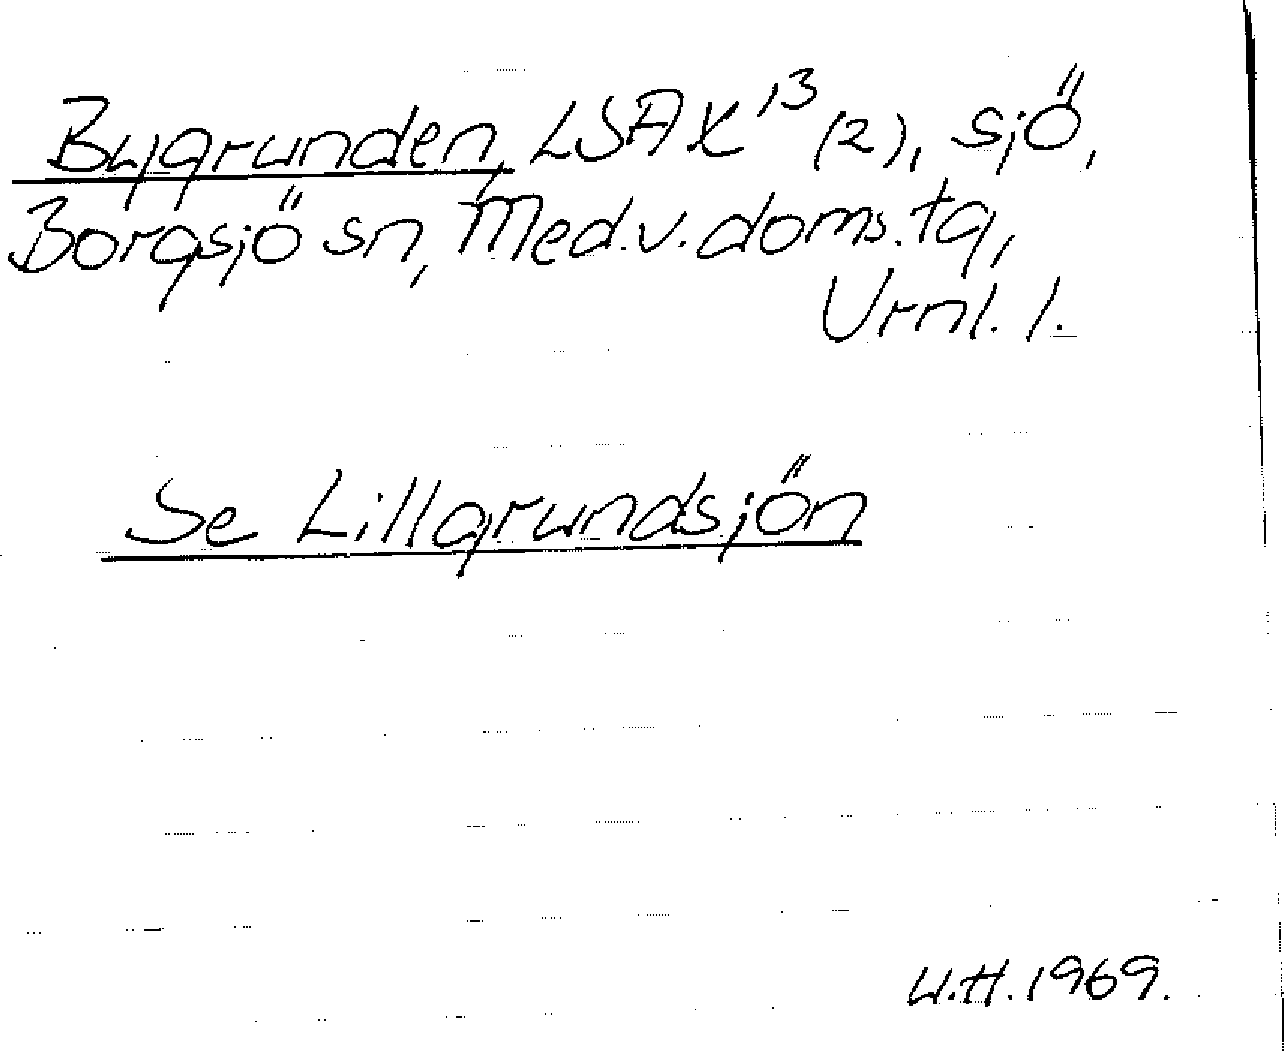 Bygrunden, LSA X¹³ (2), sjö,
Borgsjö sn, Med.v.doms.tg,
Vrnl. l.
Se Lillgrundsjön
U.H. 1969.